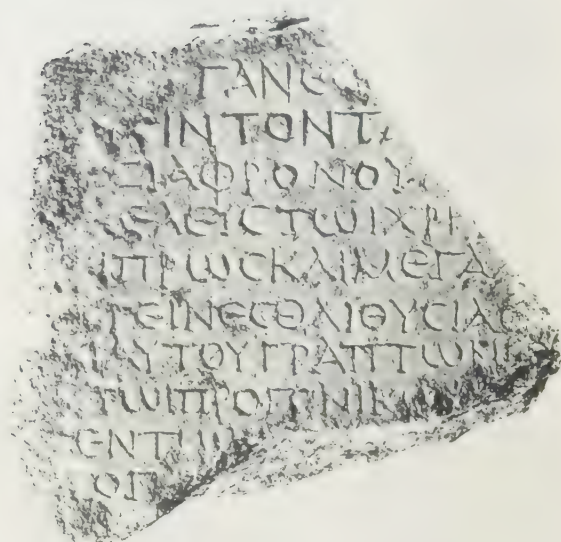 ΓΑΝΕ
ΙΝΤΟΝΤ
ΙΑΦΡΟΝΟΥ
ΕΛΕΙϹΤΩΙΧΡΗ
ΠΡΩϹΚΑΙΜΕΓΑΛ
ΓΕΙΝΕϹΘΑΙΘΥϹΙΑϹ
ΑΥΤΟΥΓΡΑΠΤΩΝ
ΤΩΙΠΡΟΠ ΝΙΚ
ΕΝΤΗ
ΟΠ